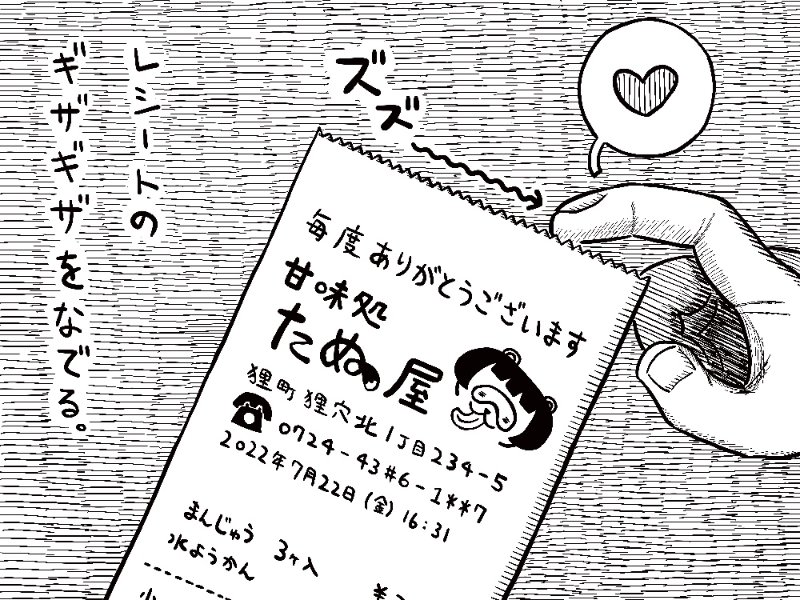 レシートの
ギザギザをなでる。
ズズ
毎度ありがとうございます
甘味処
たぬ屋
狸町狸穴北1丁目234-5
0724-43#6-1**7
2022年7月22日(金) 16:31
まんじゅう 3ヶ入
水ようかん
¥
小